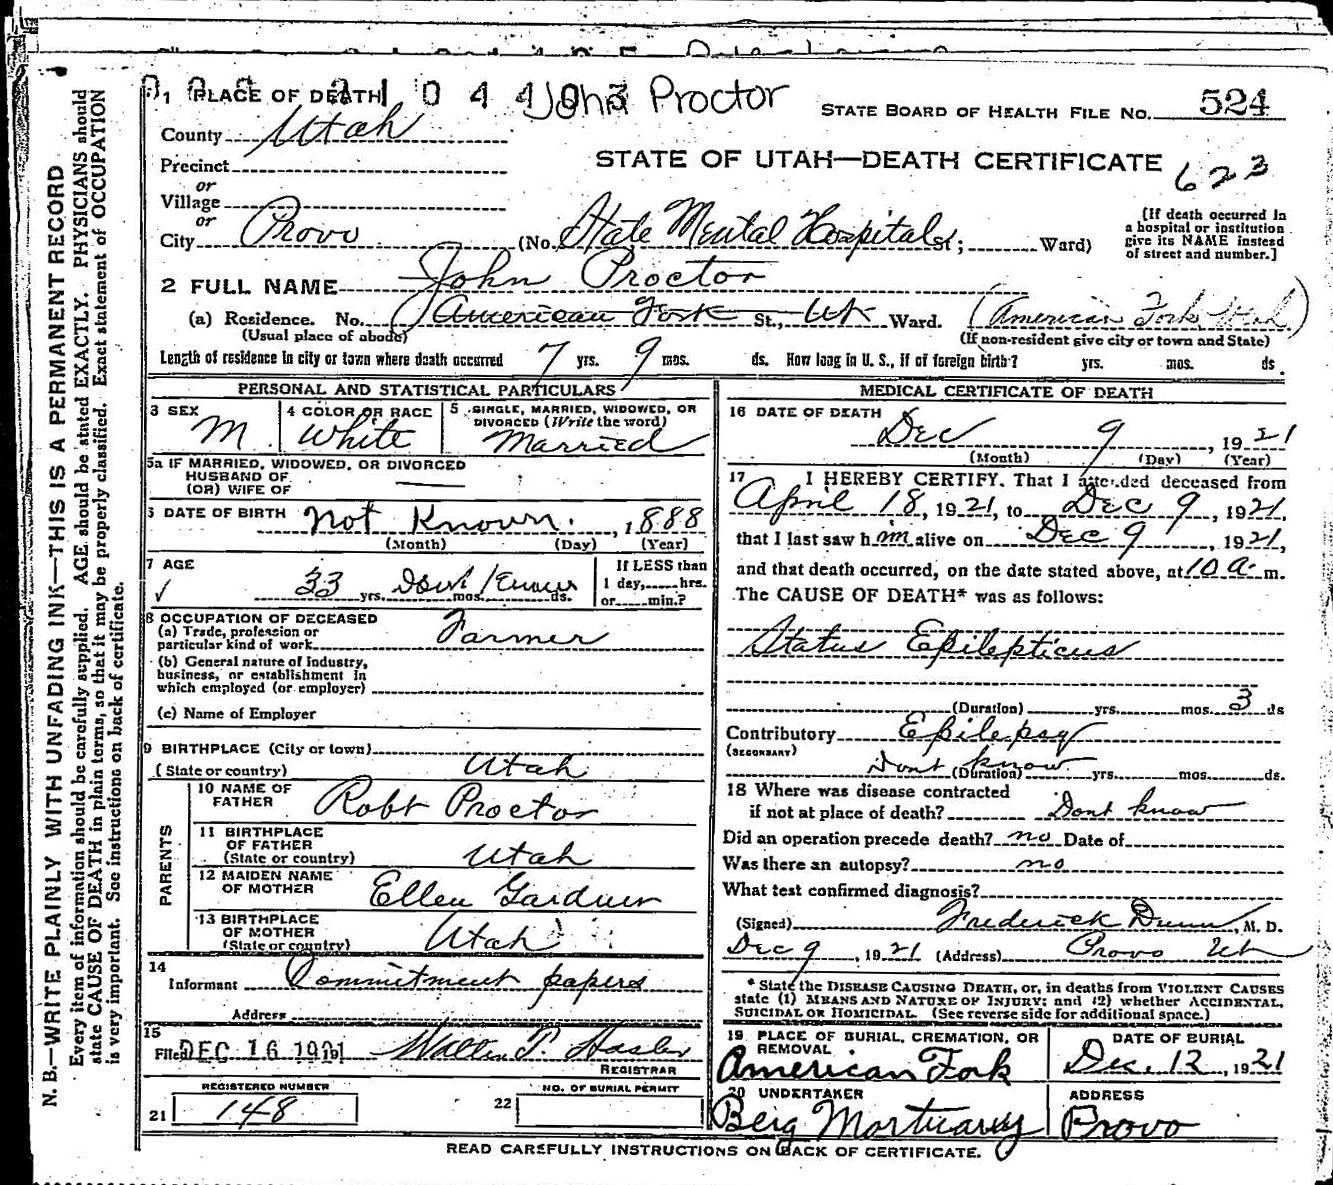 1 PLACE OF DEATH 0 4 4 0 3 John Proctor STATE BOARD OF HEALTH FILE NO. 524
County Utah
STATE OF UTAH—DEATH CERTIFICATE 623
Precinct
or
Village
or
City Provo (No. State Mental Hospital St; Ward)
[If death occurred in a hospital or institution give its NAME instead of street and number.]
2 FULL NAME John Proctor
(a) Residence. No. American Fork St., Ut Ward. (American Fork, Utah)
(Usual place of abode) (If non-resident give city or town and State)
Length of residence in city or town where death occurred 7 yrs. 9 mos. ds. How long in U. S., if of foreign birth? yrs. mos. ds.
PERSONAL AND STATISTICAL PARTICULARS
3 SEX M
4 COLOR OR RACE White
5 SINGLE, MARRIED, WIDOWED, OR DIVORCED (Write the word) Married
5a IF MARRIED, WIDOWED, OR DIVORCED
HUSBAND OF
(OR) WIFE OF
6 DATE OF BIRTH Not Known, 1888
(Month) (Day) (Year)
7 AGE 33 yrs. Dont Know mos. ds.
If LESS than
1 day, hrs.
or min.?
8 OCCUPATION OF DECEASED
(a) Trade, profession or
particular kind of work Farmer
(b) General nature of industry,
business, or establishment in
which employed (or employer)
(c) Name of Employer
9 BIRTHPLACE (City or town)
(State or country) Utah
PARENTS
10 NAME OF
FATHER Robt Proctor
11 BIRTHPLACE
OF FATHER
(State or country) Utah
12 MAIDEN NAME
OF MOTHER Ellen Gardner
13 BIRTHPLACE
OF MOTHER
(State or country) Utah
14
Informant Commitment papers
Address
15
Filed DEC 16 1921 Walter T. Hasler
REGISTRAR
REGISTERED NUMBER
21 148
NO. OF BURIAL PERMIT
22
MEDICAL CERTIFICATE OF DEATH
16 DATE OF DEATH
Dec 9, 1921
(Month) (Day) (Year)
17 I HEREBY CERTIFY, That I attended deceased from
April 18, 1921, to Dec 9, 1921,
that I last saw him alive on Dec 9, 1921,
and that death occurred, on the date stated above, at 10 a. m.
The CAUSE OF DEATH* was as follows:
Status Epilepticus
(Duration) yrs. mos. 3 ds
Contributory Epilepsy
(SECONDARY)
Dont know (Duration) yrs. mos. ds.
18 Where was disease contracted
if not at place of death? Dont know
Did an operation precede death? no Date of
Was there an autopsy? no
What test confirmed diagnosis?
(Signed) Frederick Dunn, M. D.
Dec 9, 1921 (Address) Provo Ut
* State the DISEASE CAUSING DEATH, or, in deaths from VIOLENT CAUSES
state (1) MEANS AND NATURE OF INJURY; and (2) whether ACCIDENTAL,
SUICIDAL OR HOMICIDAL. (See reverse side for additional space.)
19 PLACE OF BURIAL, CREMATION, OR
REMOVAL
American Fork
DATE OF BURIAL
Dec. 12, 1921
20 UNDERTAKER
Berg Mortuary
ADDRESS
Provo
READ CAREFULLY INSTRUCTIONS ON BACK OF CERTIFICATE.
N. B.—WRITE PLAINLY WITH UNFADING INK—THIS IS A PERMANENT RECORD
Every item of information should be carefully supplied. AGE should be stated EXACTLY. PHYSICIANS should
state CAUSE OF DEATH in plain terms, so that it may be properly classified. Exact statement of OCCUPATION
is very important. See instructions on back of certificate.